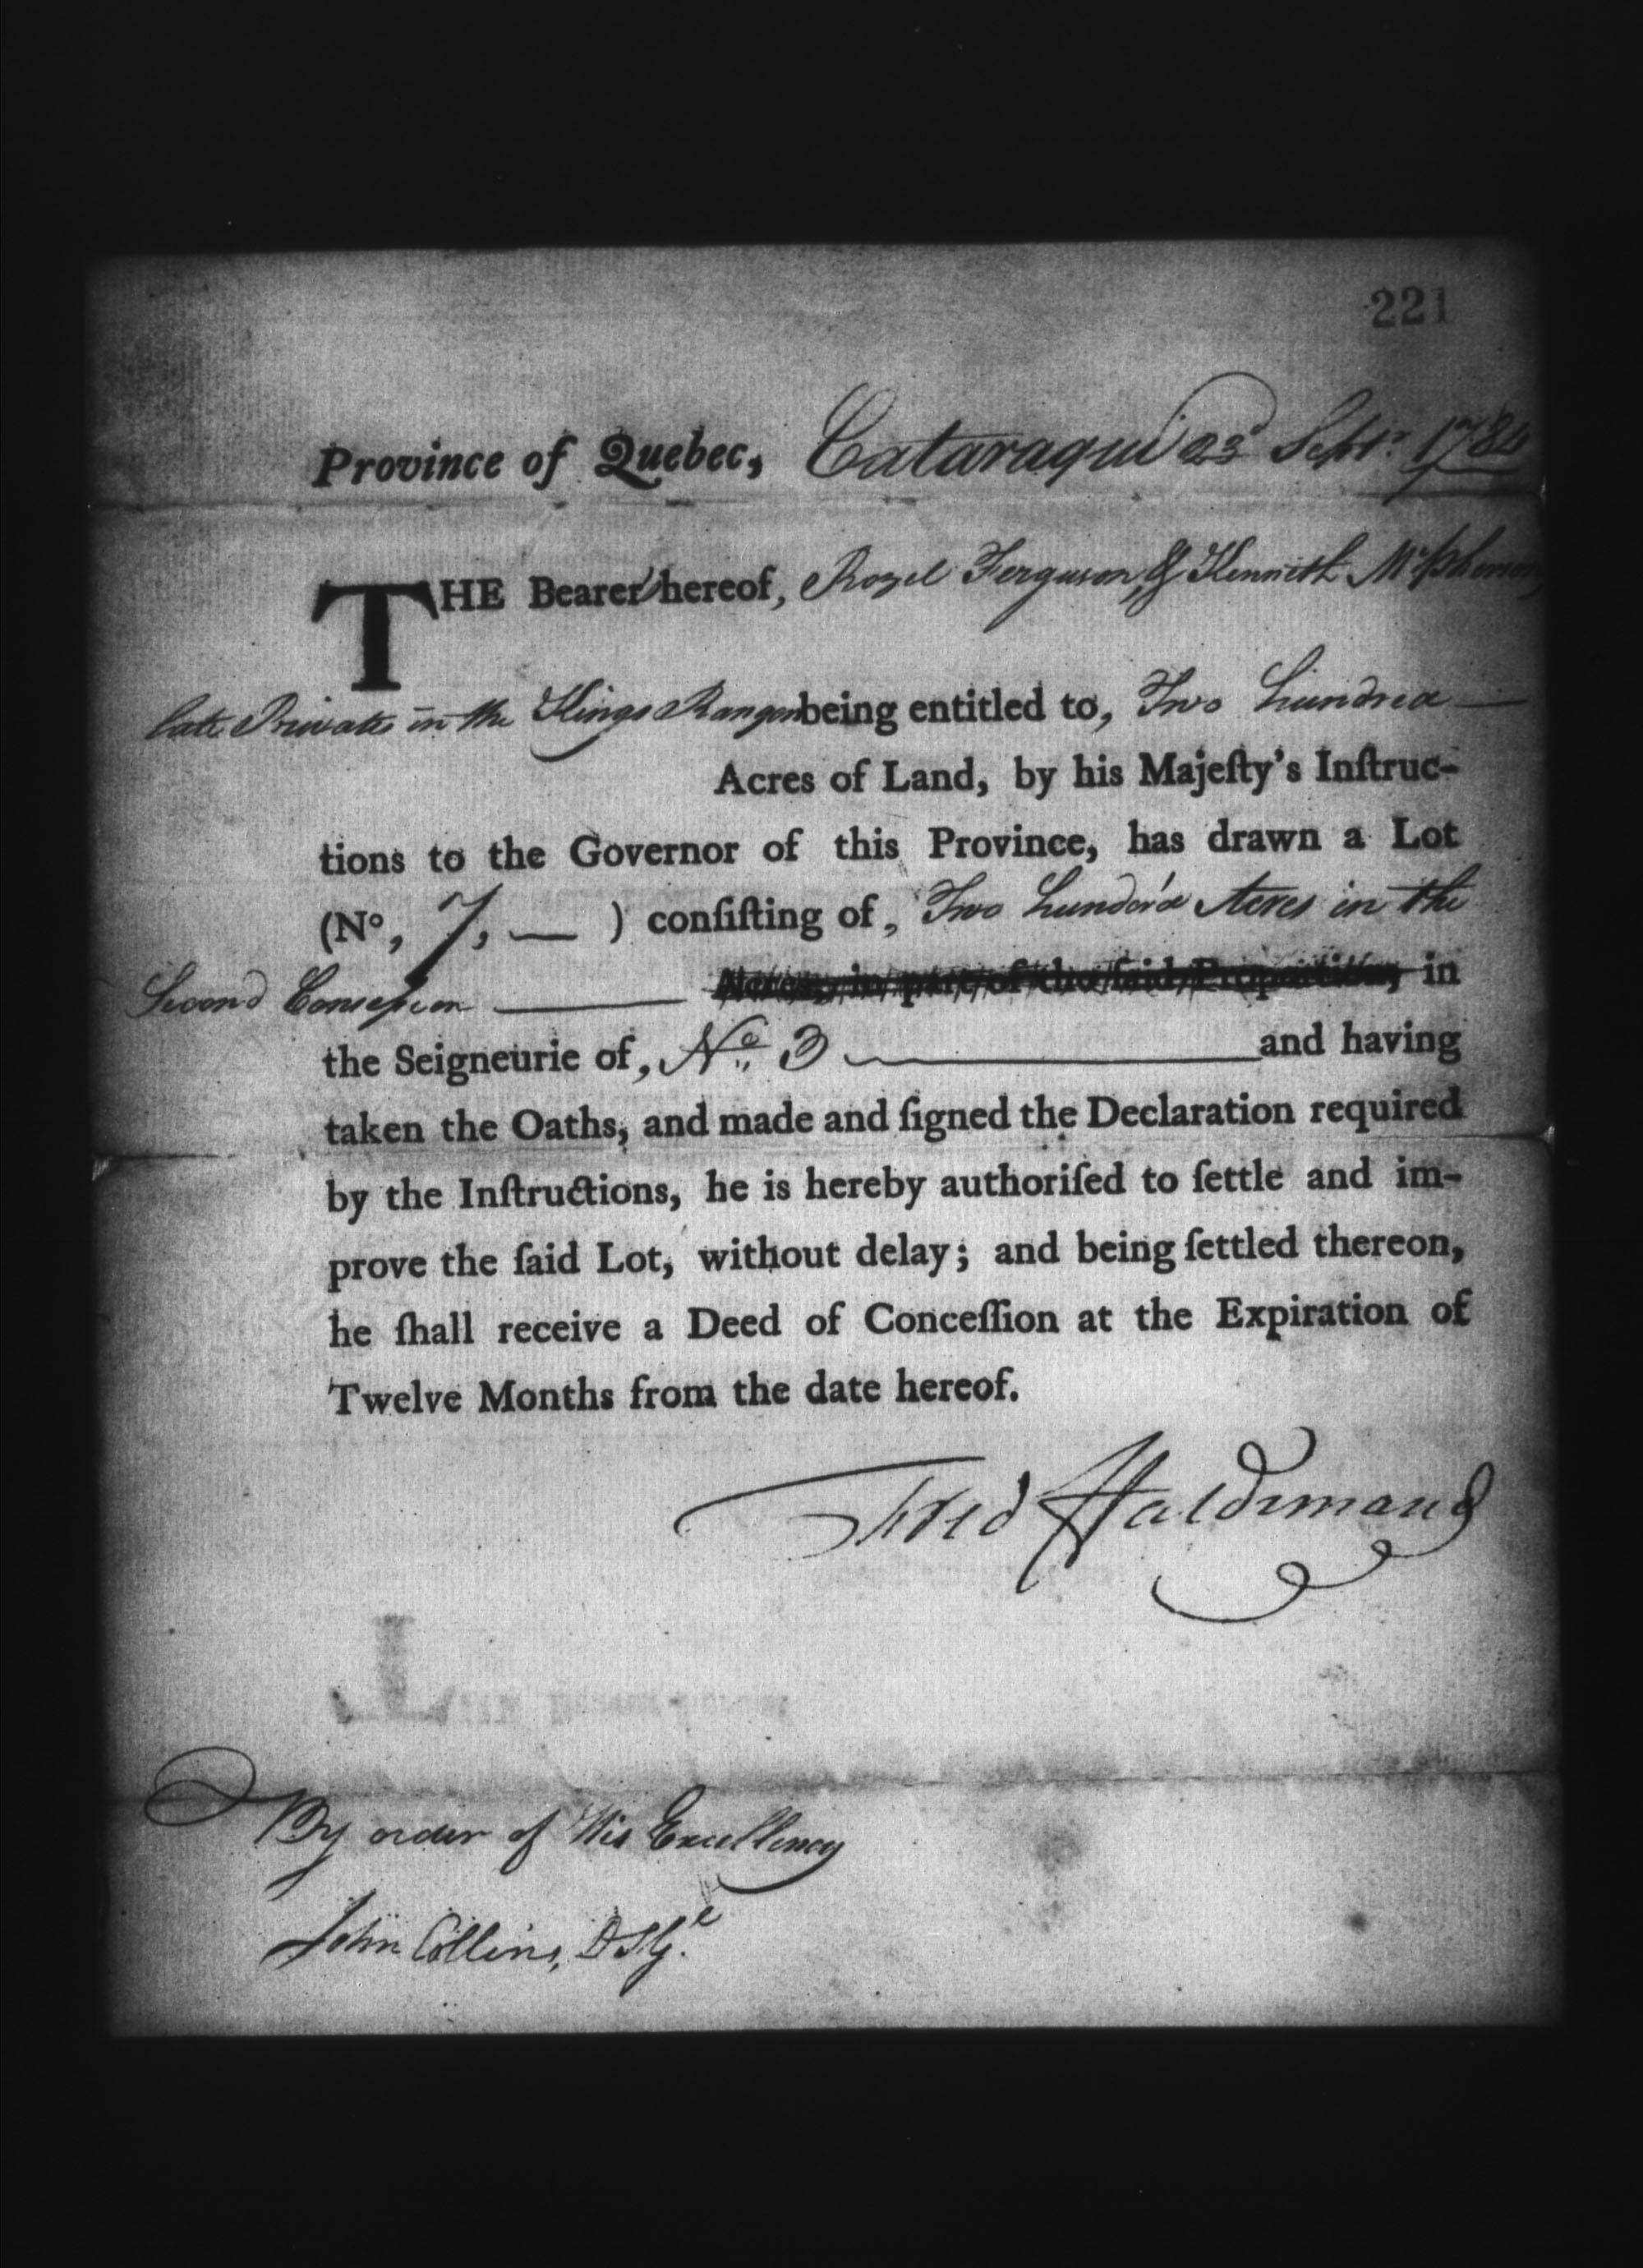 221
Province of Quebec, Cataraqui 23d Septr. 1784
THE Bearer hereof, Rozel Ferguson, & Kenneth
late Privates in the Kings Rangers being entitled to, Two hundred —
Acres of Land, by his Majeſty's Inſtruc-
tions to the Governor of this Province, has drawn a Lot
(No, 7, — ) conſiſting of, Two hundred Acres in the
Second Concession ——— Acres, in part of the ſaid Proportion, in
the Seigneurie of, No. 3 ——— and having
taken the Oaths, and made and ſigned the Declaration required
by the Inſtructions, he is hereby authoriſed to ſettle and im-
prove the ſaid Lot, without delay; and being ſettled thereon,
he ſhall receive a Deed of Conceſſion at the Expiration of
Twelve Months from the date hereof.
Fred Haldimand
By order of His Excellency
John Collins, D S Ge.